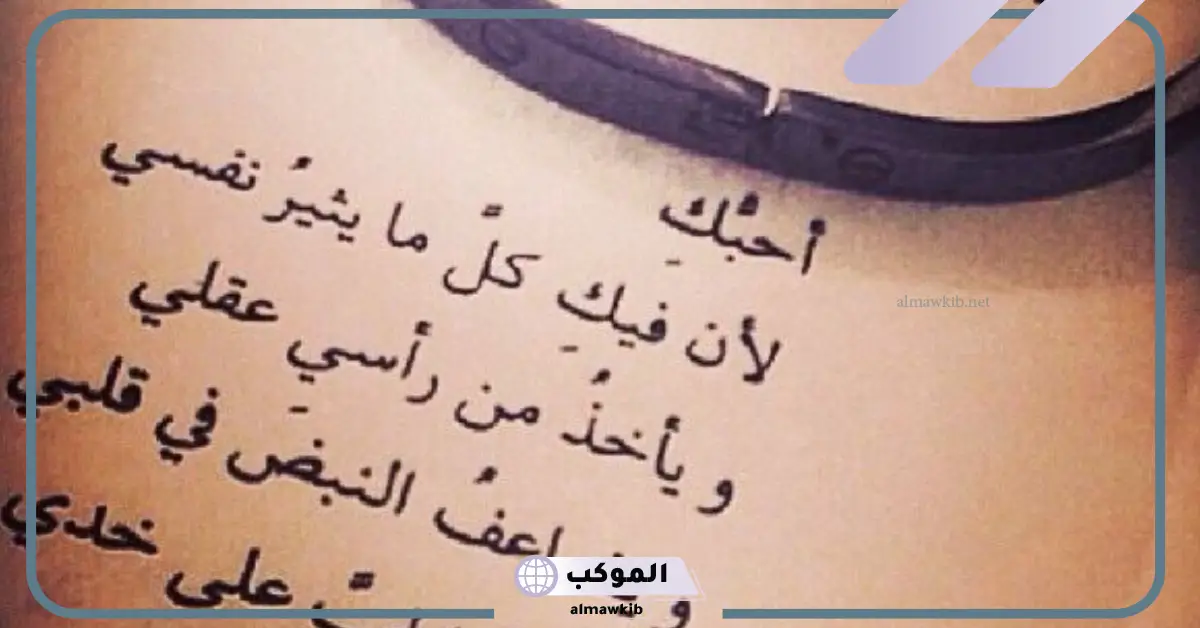 أحبُّكِ
لأن فيكِ كلَّ ما يثيرُ نفسي
و يأخذُ من رأسي عقلي
النبضَ في قلبي
على خدي
almawktb.net
الموكب
almawkib